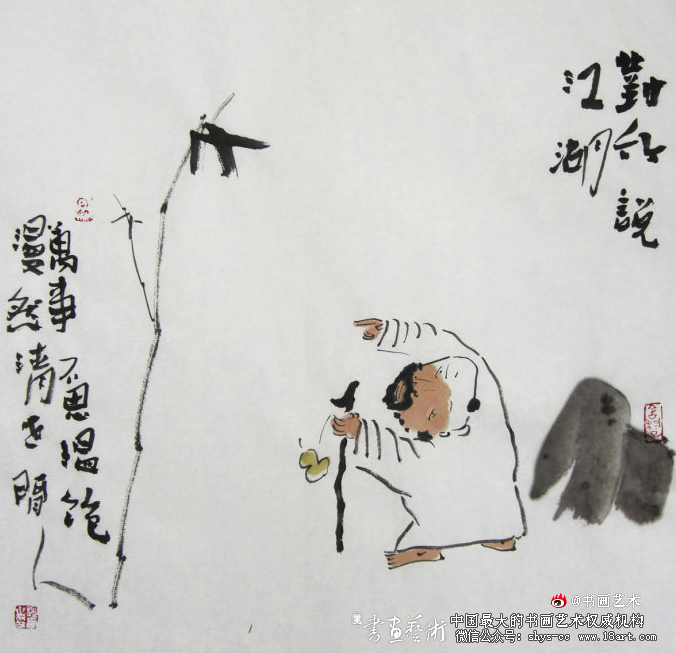 對竹說
江湖
萬事不思溫飽
漫然清
@书画艺术
書畫藝術
中国最大的书画艺术权威机构
微信公众号: shys-cc www.18art.com